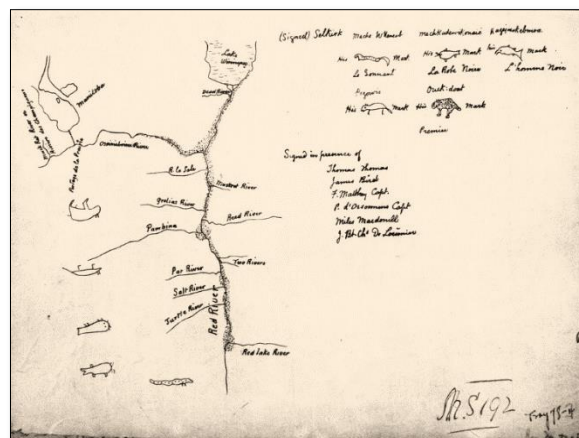 (Signed) Selkirk
Mache Wheseab
Mechkadewikonaie
Kayajieskebinoa
His Mark
His Mark
his Mark
Le Sonnant
La Robe Noire
L'homme Noir
Pegowis
Ouckidoat
His Mark
His Mark
Premier
Signed in presence of
Thomas Thomas
James Bird
F. Matthey Capt.
P. d'Orsonnens Capt
Miles Macdonell
J. Bt. Chs De Lorimier
Lake
Winnipeg
Dead River
Manitoba
Assiniboine River
Portage de la Prairie
R. la Sale
Muskrat River
Gratias River
Reed River
Pambina
Two Rivers
Par River
Salt River
Turtle River
Red River
Red Lake River